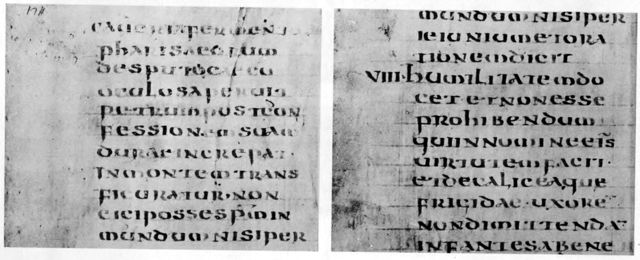 CAUERIAFERMENT
PHARISAEORUM
DESPUTOCAECO
OCULOSAPERUIT
PETRUMPOSTCON
FESSIONEMSUAM
DURAEINCREPAT·
INMONTEMTRANS
FIGURATUR·NON
EICIPOSSESP̄MIN
MUNDUMNISIPER
MUNDUMNISIPER
IEIUNIUMETORA
TIONEMDICIT
VIII·HUMILITATEMDO
CETETNONESSE
PROHIBENDUM
QUIINNOMINEEIS̄
UIRTUTEMFACIT·
ETDECALICEAQUE
FRIGIDAE·UXORE
NONDIMITTENDA
INFANTESABENE